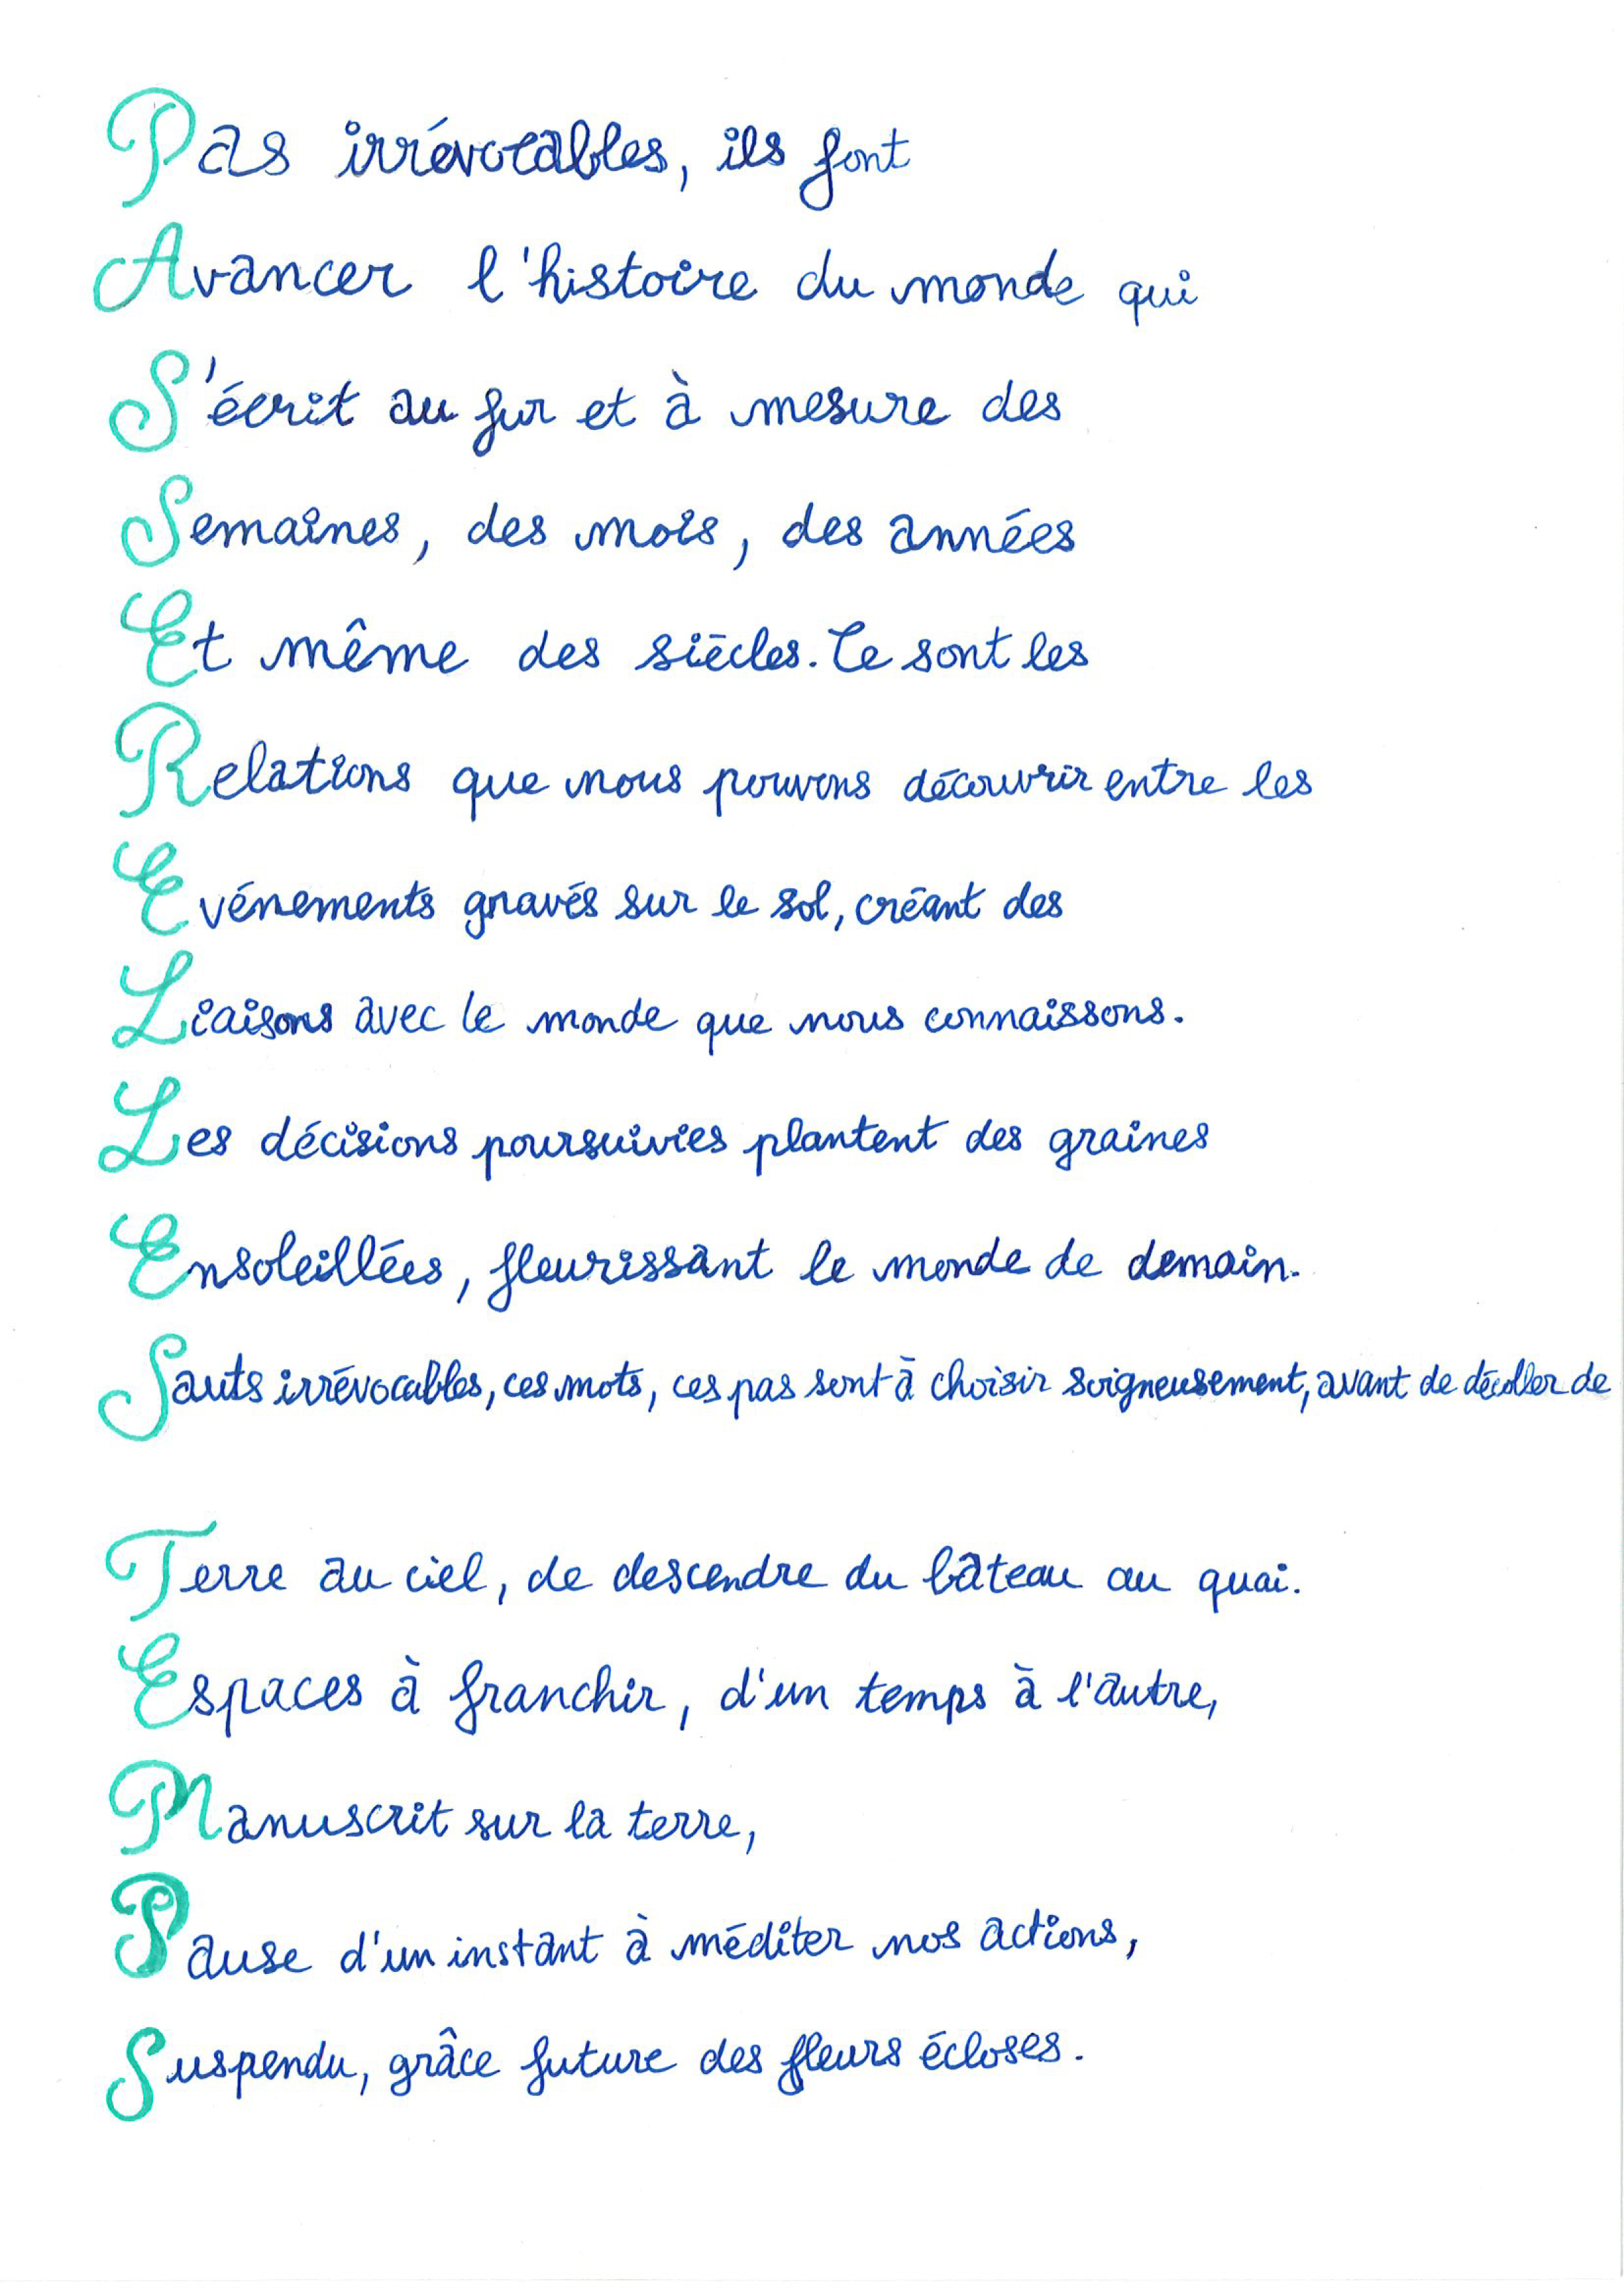 Pas irrévocables, ils font
Avancer l'histoire du monde qui
S'écrit au fur et à mesure des
Semaines, des mois, des années
Et même des siècles. Ce sont les
Relations que nous pouvons découvrir entre les
Evénements gravés sur le sol, créant des
Liaisons avec le monde que nous connaissons.
Les décisions poursuivies plantent des graines
Ensoleillées, fleurissant le monde de demain.
Sauts irrévocables, ces mots, ces pas sont à choisir soigneusement, avant de décoller de
Terre au ciel, de descendre du bâteau au quai.
Espaces à franchir, d'un temps à l'autre,
Manuscrit sur la terre,
Pause d'un instant à méditer nos actions,
Suspendu, grâce future des fleurs écloses.